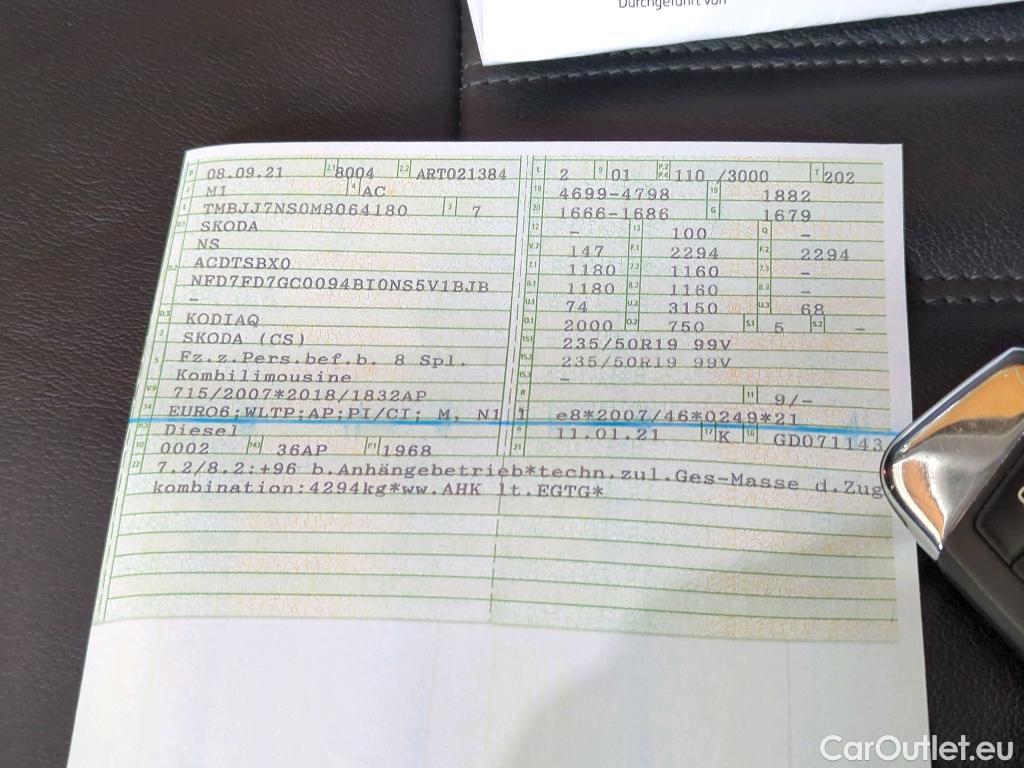 Durchgeführt von
B 08.09.21 2.1 8004 2.2 ART021384
J M1 4 AC
E TMBJJ7NS0M8064180 3 7
D.1 SKODA
NS
D.2 ACDTSBX0
NFD7FD7GC0094BI0NS5V1BJB
–
D.3 KODIAQ
2 SKODA (CS)
5 Fz.z.Pers.bef.b. 8 Spl.
Kombilimousine
V.9 715/2007*2018/1832AP
14 EURO6;WLTP;AP;PI/CI; M, N1 I
P.3 Diesel
10 0002 14.1 36AP P.1 1968
L 2 9 01 P.2 P.4 110 /3000 T 202
18 4699-4798 19 1882
20 1666-1686 G 1679
12 – 13 100 Q –
V.7 147 F.1 2294 F.2 2294
7.1 1180 7.2 1160 7.3 –
8.1 1180 8.2 1160 8.3 –
U.1 74 U.2 3150 U.3 68
O.1 2000 O.2 750 S.1 5 S.2 –
15.1 235/50R19 99V
15.2 235/50R19 99V
15.3 –
R 11 9/–
K e8*2007/46*0249*21
6 11.01.21 17 K 16 GD071143
21
22 7.2/8.2:+96 b.Anhängebetrieb*techn.zul.Ges-Masse d.Zug
kombination:4294kg*ww.AHK lt.EGTG*
CarOutlet.eu